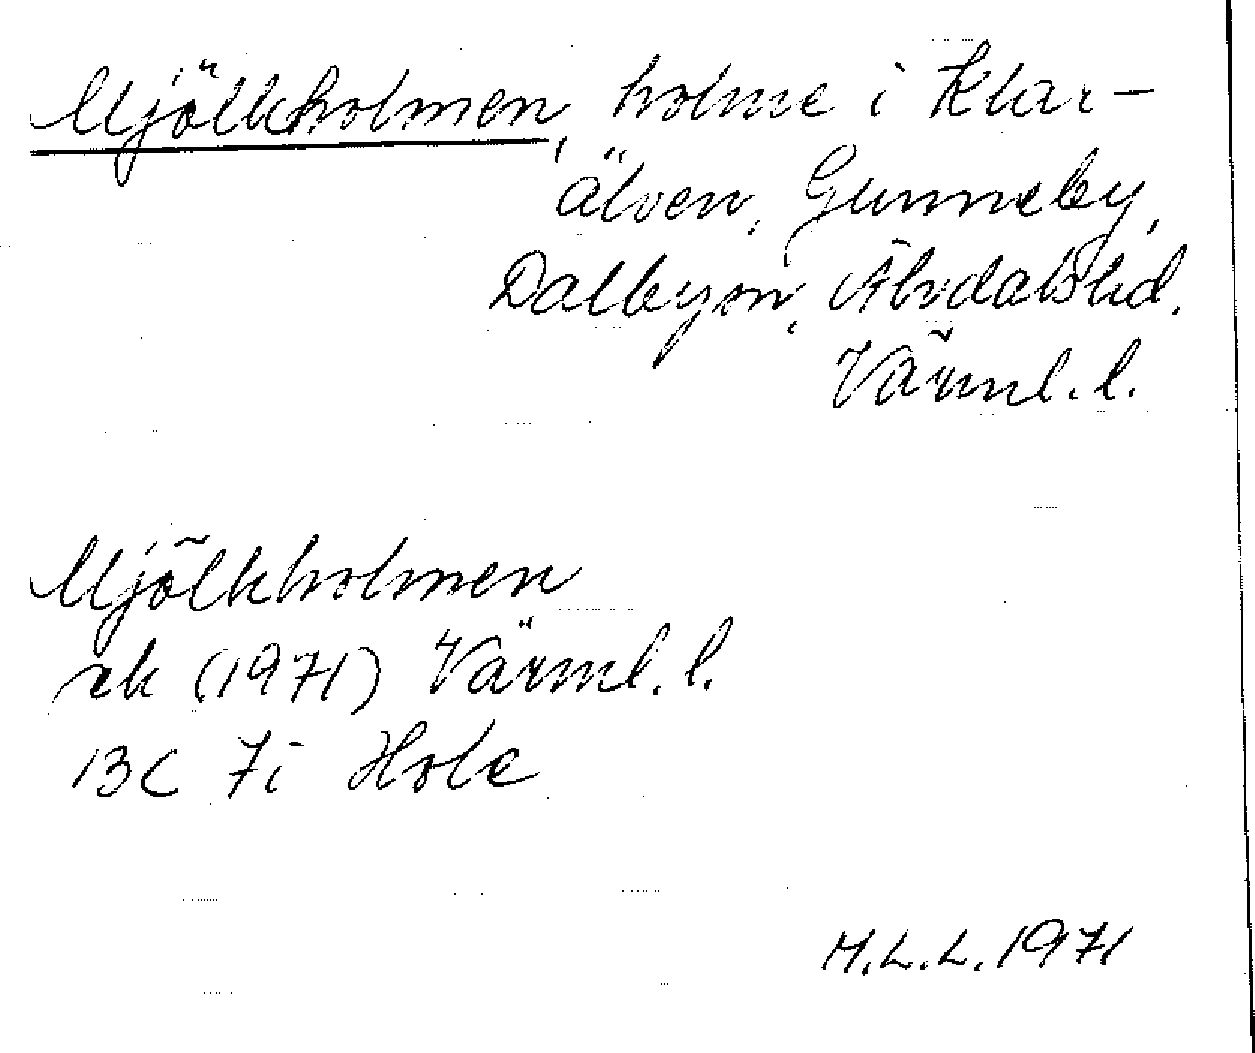 Mjölkholmen, holme i Klar-
älven, Gunneby,
Dalbysn, Älvdalshd.
Värml. l.
Mjölkholmen
ek (1971) Värml. l.
13C 7i Hole
M.L.L. 1971